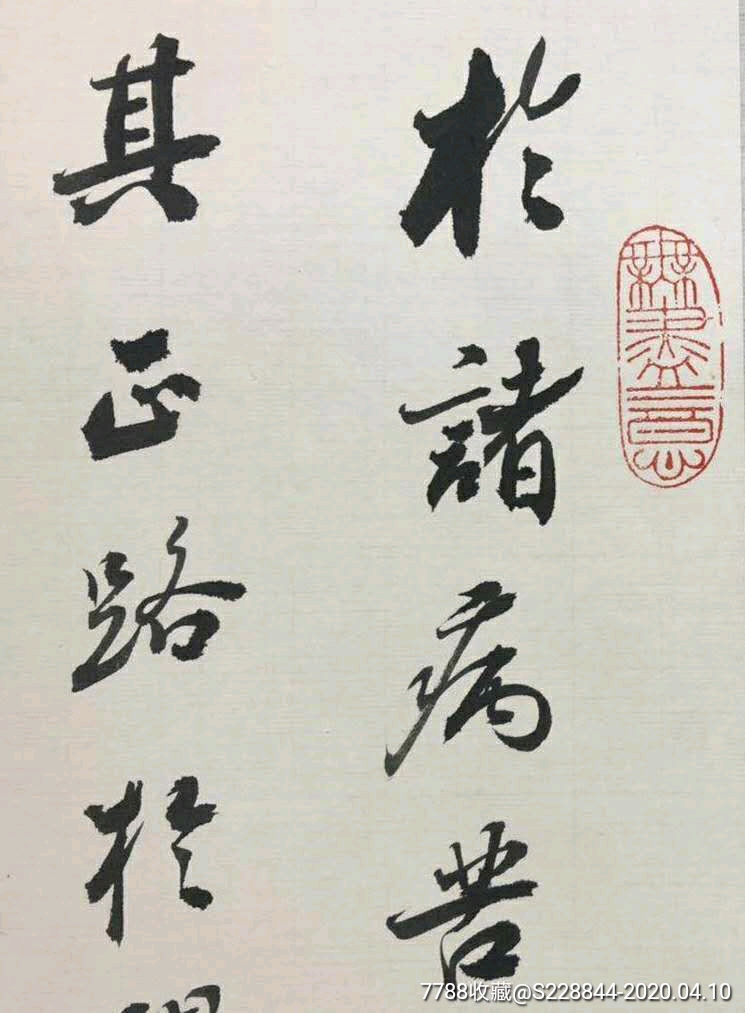 於諸病苦
其正路於
無盡意
7788收藏@S228844-2020.04.10